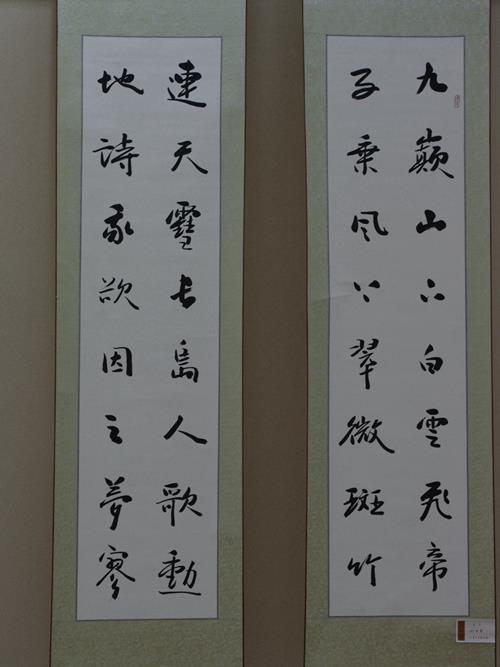 九嶷山上白雲飛帝
子乘風下翠微斑竹
連天雪長島人歌動
地詩我欲因之夢寥